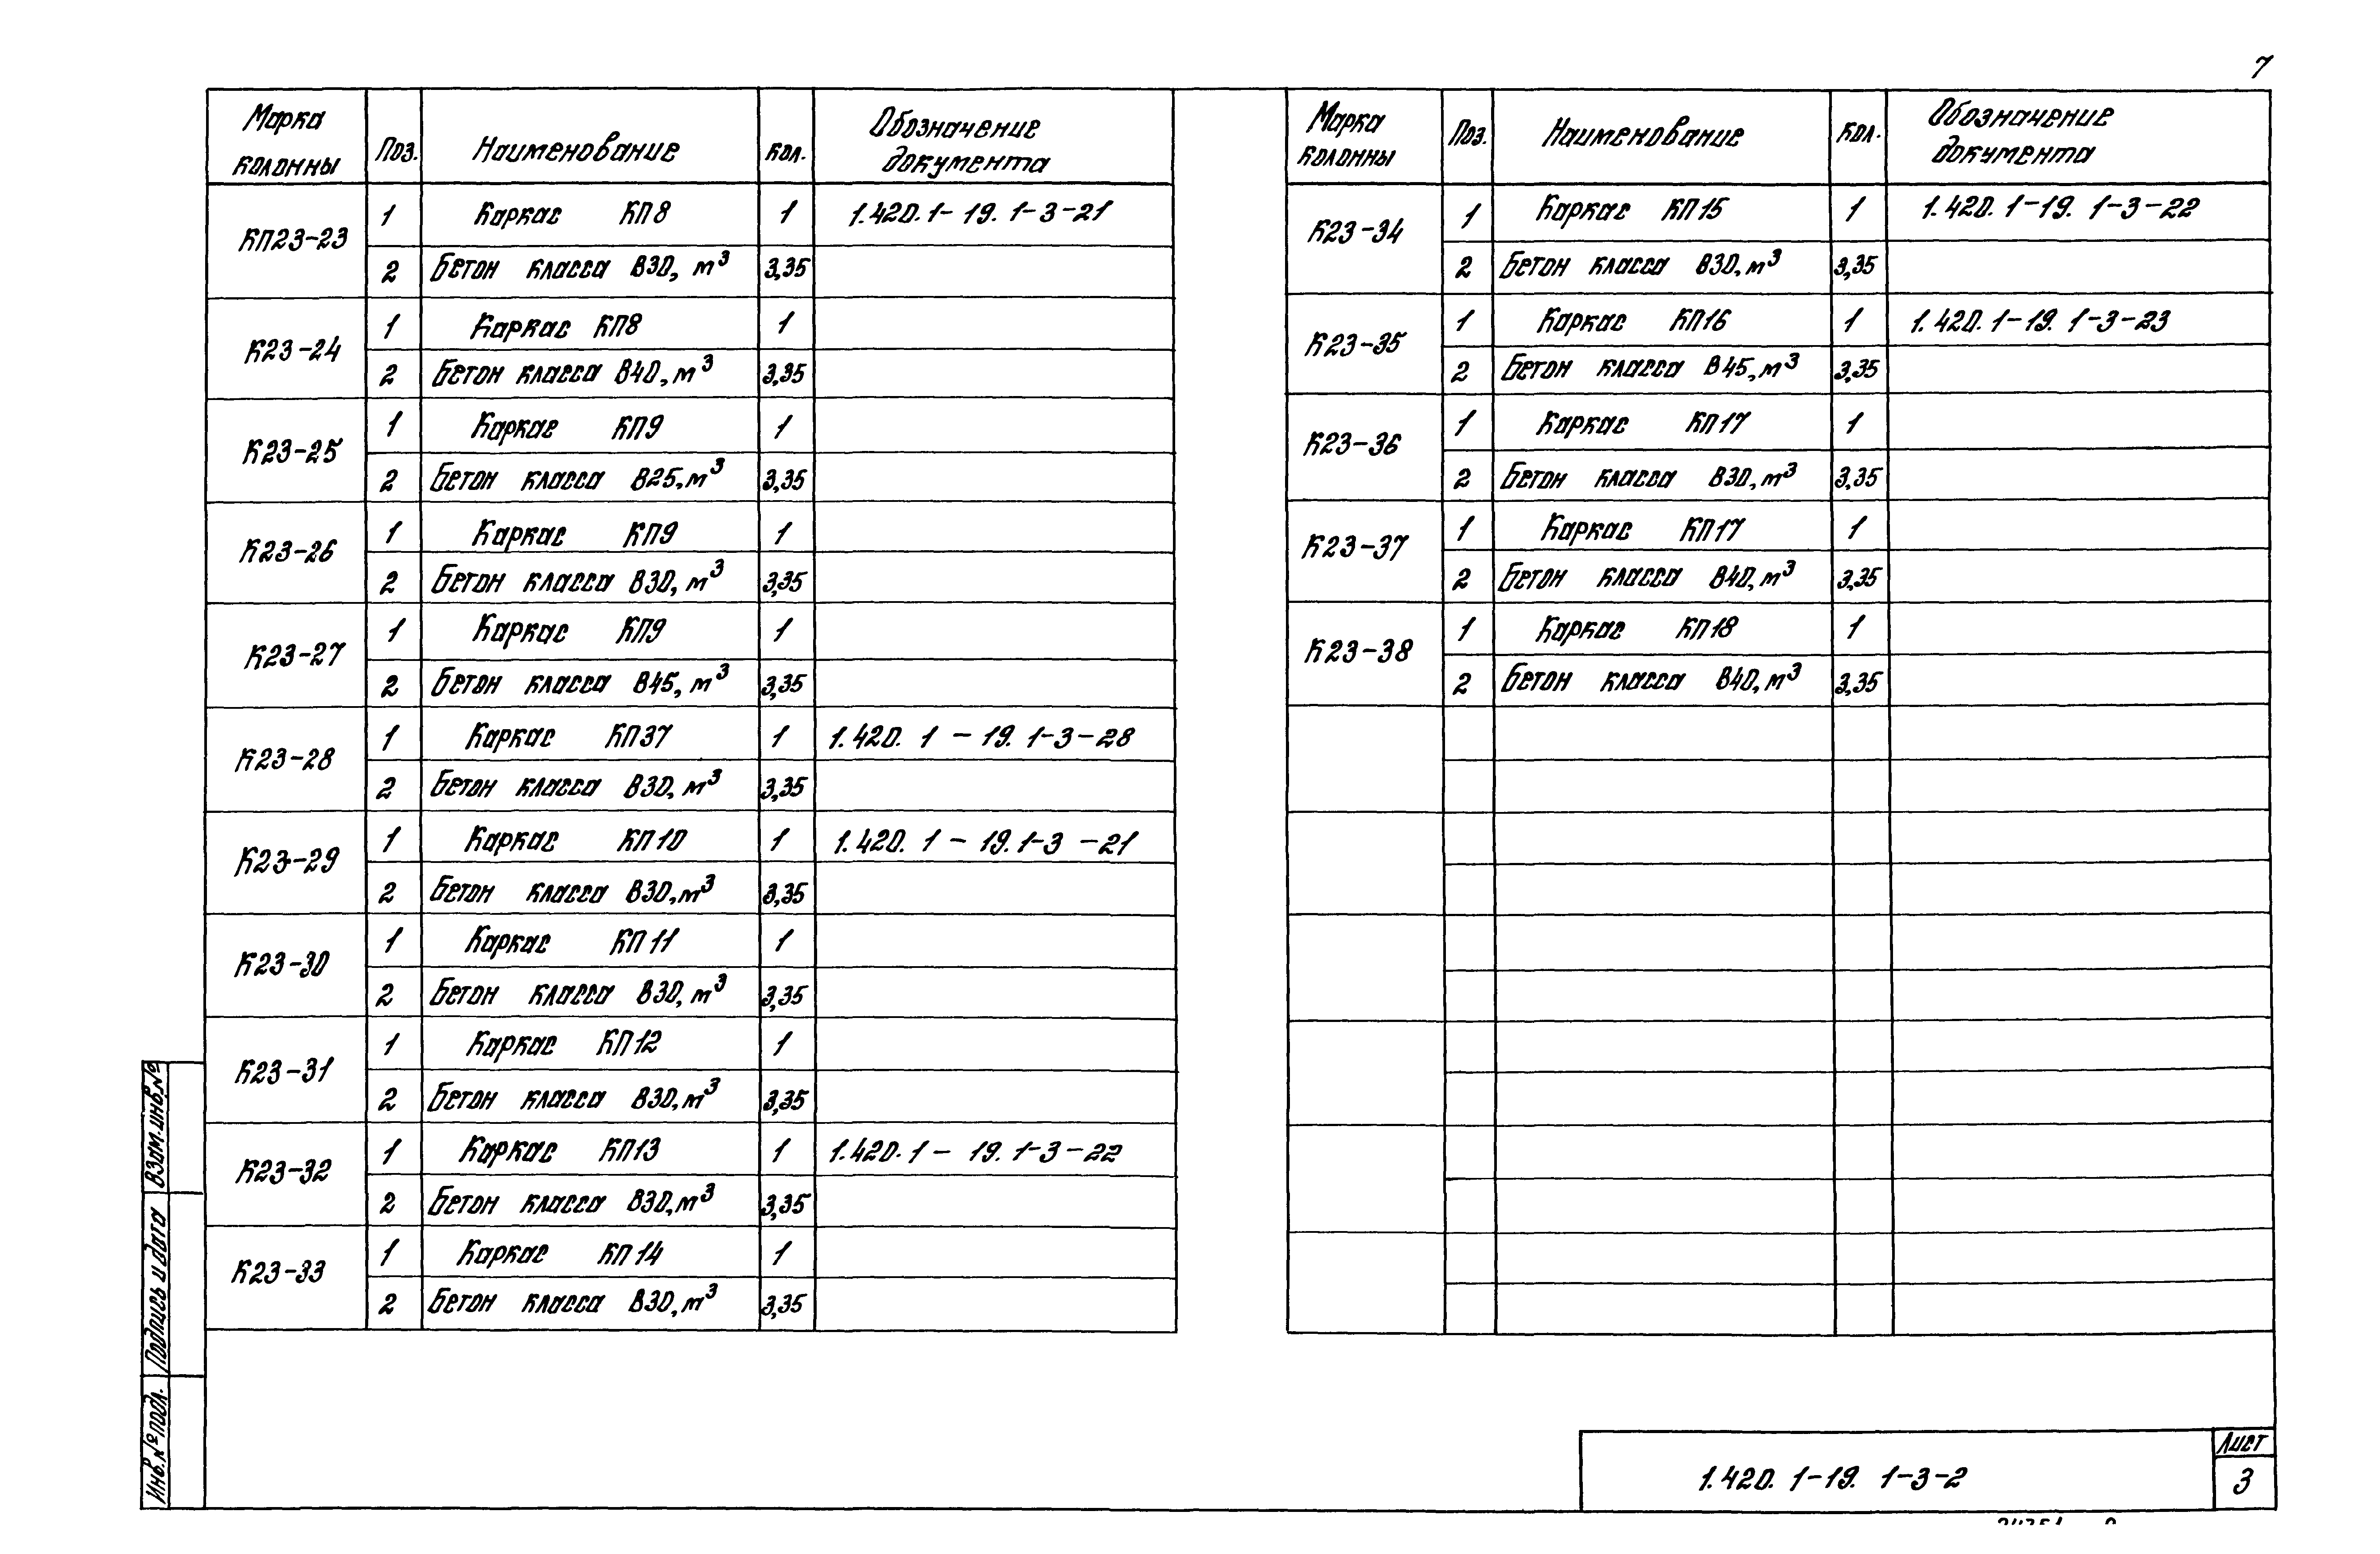 7
Марка колонны Поз. Наименование Кол. Обозначение документа
КП23-23 1 Каркас КП8 1 1.420.1-19.1-3-21
2 Бетон класса В30, м³ 3,35
К23-24 1 Каркас КП8 1
2 Бетон класса В40, м³ 3,35
К23-25 1 Каркас КП9 1
2 Бетон класса В25, м³ 3,35
К23-26 1 Каркас КП9 1
2 Бетон класса В30, м³ 3,35
К23-27 1 Каркас КП9 1
2 Бетон класса В45, м³ 3,35
К23-28 1 Каркас КП37 1 1.420.1-19.1-3-28
2 Бетон класса В30, м³ 3,35
К23-29 1 Каркас КП10 1 1.420.1-19.1-3-21
2 Бетон класса В30, м³ 3,35
К23-30 1 Каркас КП11 1
2 Бетон класса В30, м³ 3,35
К23-31 1 Каркас КП12 1
2 Бетон класса В30, м³ 3,35
К23-32 1 Каркас КП13 1 1.420.1-19.1-3-22
2 Бетон класса В30, м³ 3,35
К23-33 1 Каркас КП14 1
2 Бетон класса В30, м³ 3,35
Марка колонны Поз. Наименование Кол. Обозначение документа
К23-34 1 Каркас КП15 1 1.420.1-19.1-3-22
2 Бетон класса В30, м³ 3,35
К23-35 1 Каркас КП16 1 1.420.1-19.1-3-23
2 Бетон класса В45, м³ 3,35
К23-36 1 Каркас КП17 1
2 Бетон класса В30, м³ 3,35
К23-37 1 Каркас КП17 1
2 Бетон класса В40, м³ 3,35
К23-38 1 Каркас КП18 1
2 Бетон класса В40, м³ 3,35
Взам.инв.№
Подпись и дата
Инв.№ подл.
1.420.1-19.1-3-2
Лист
3